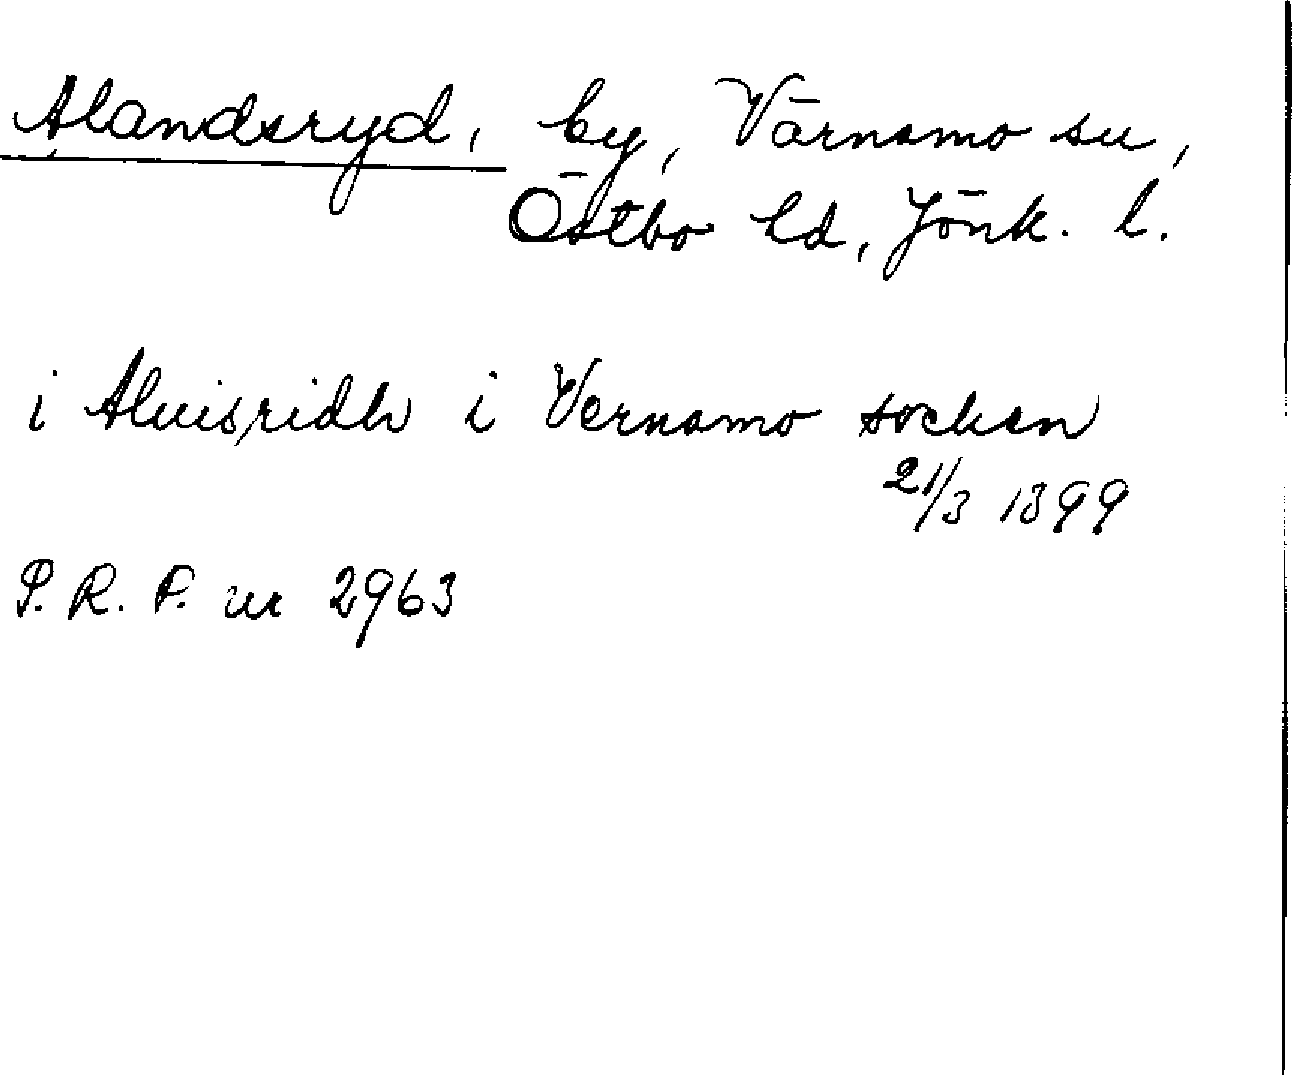 Alandsryd, by, Värnamo sn,
Östbo hd, Jönk. l.
i Aluisridh i Vernamo socken
21/3 1399
S.R.P. nr 2963